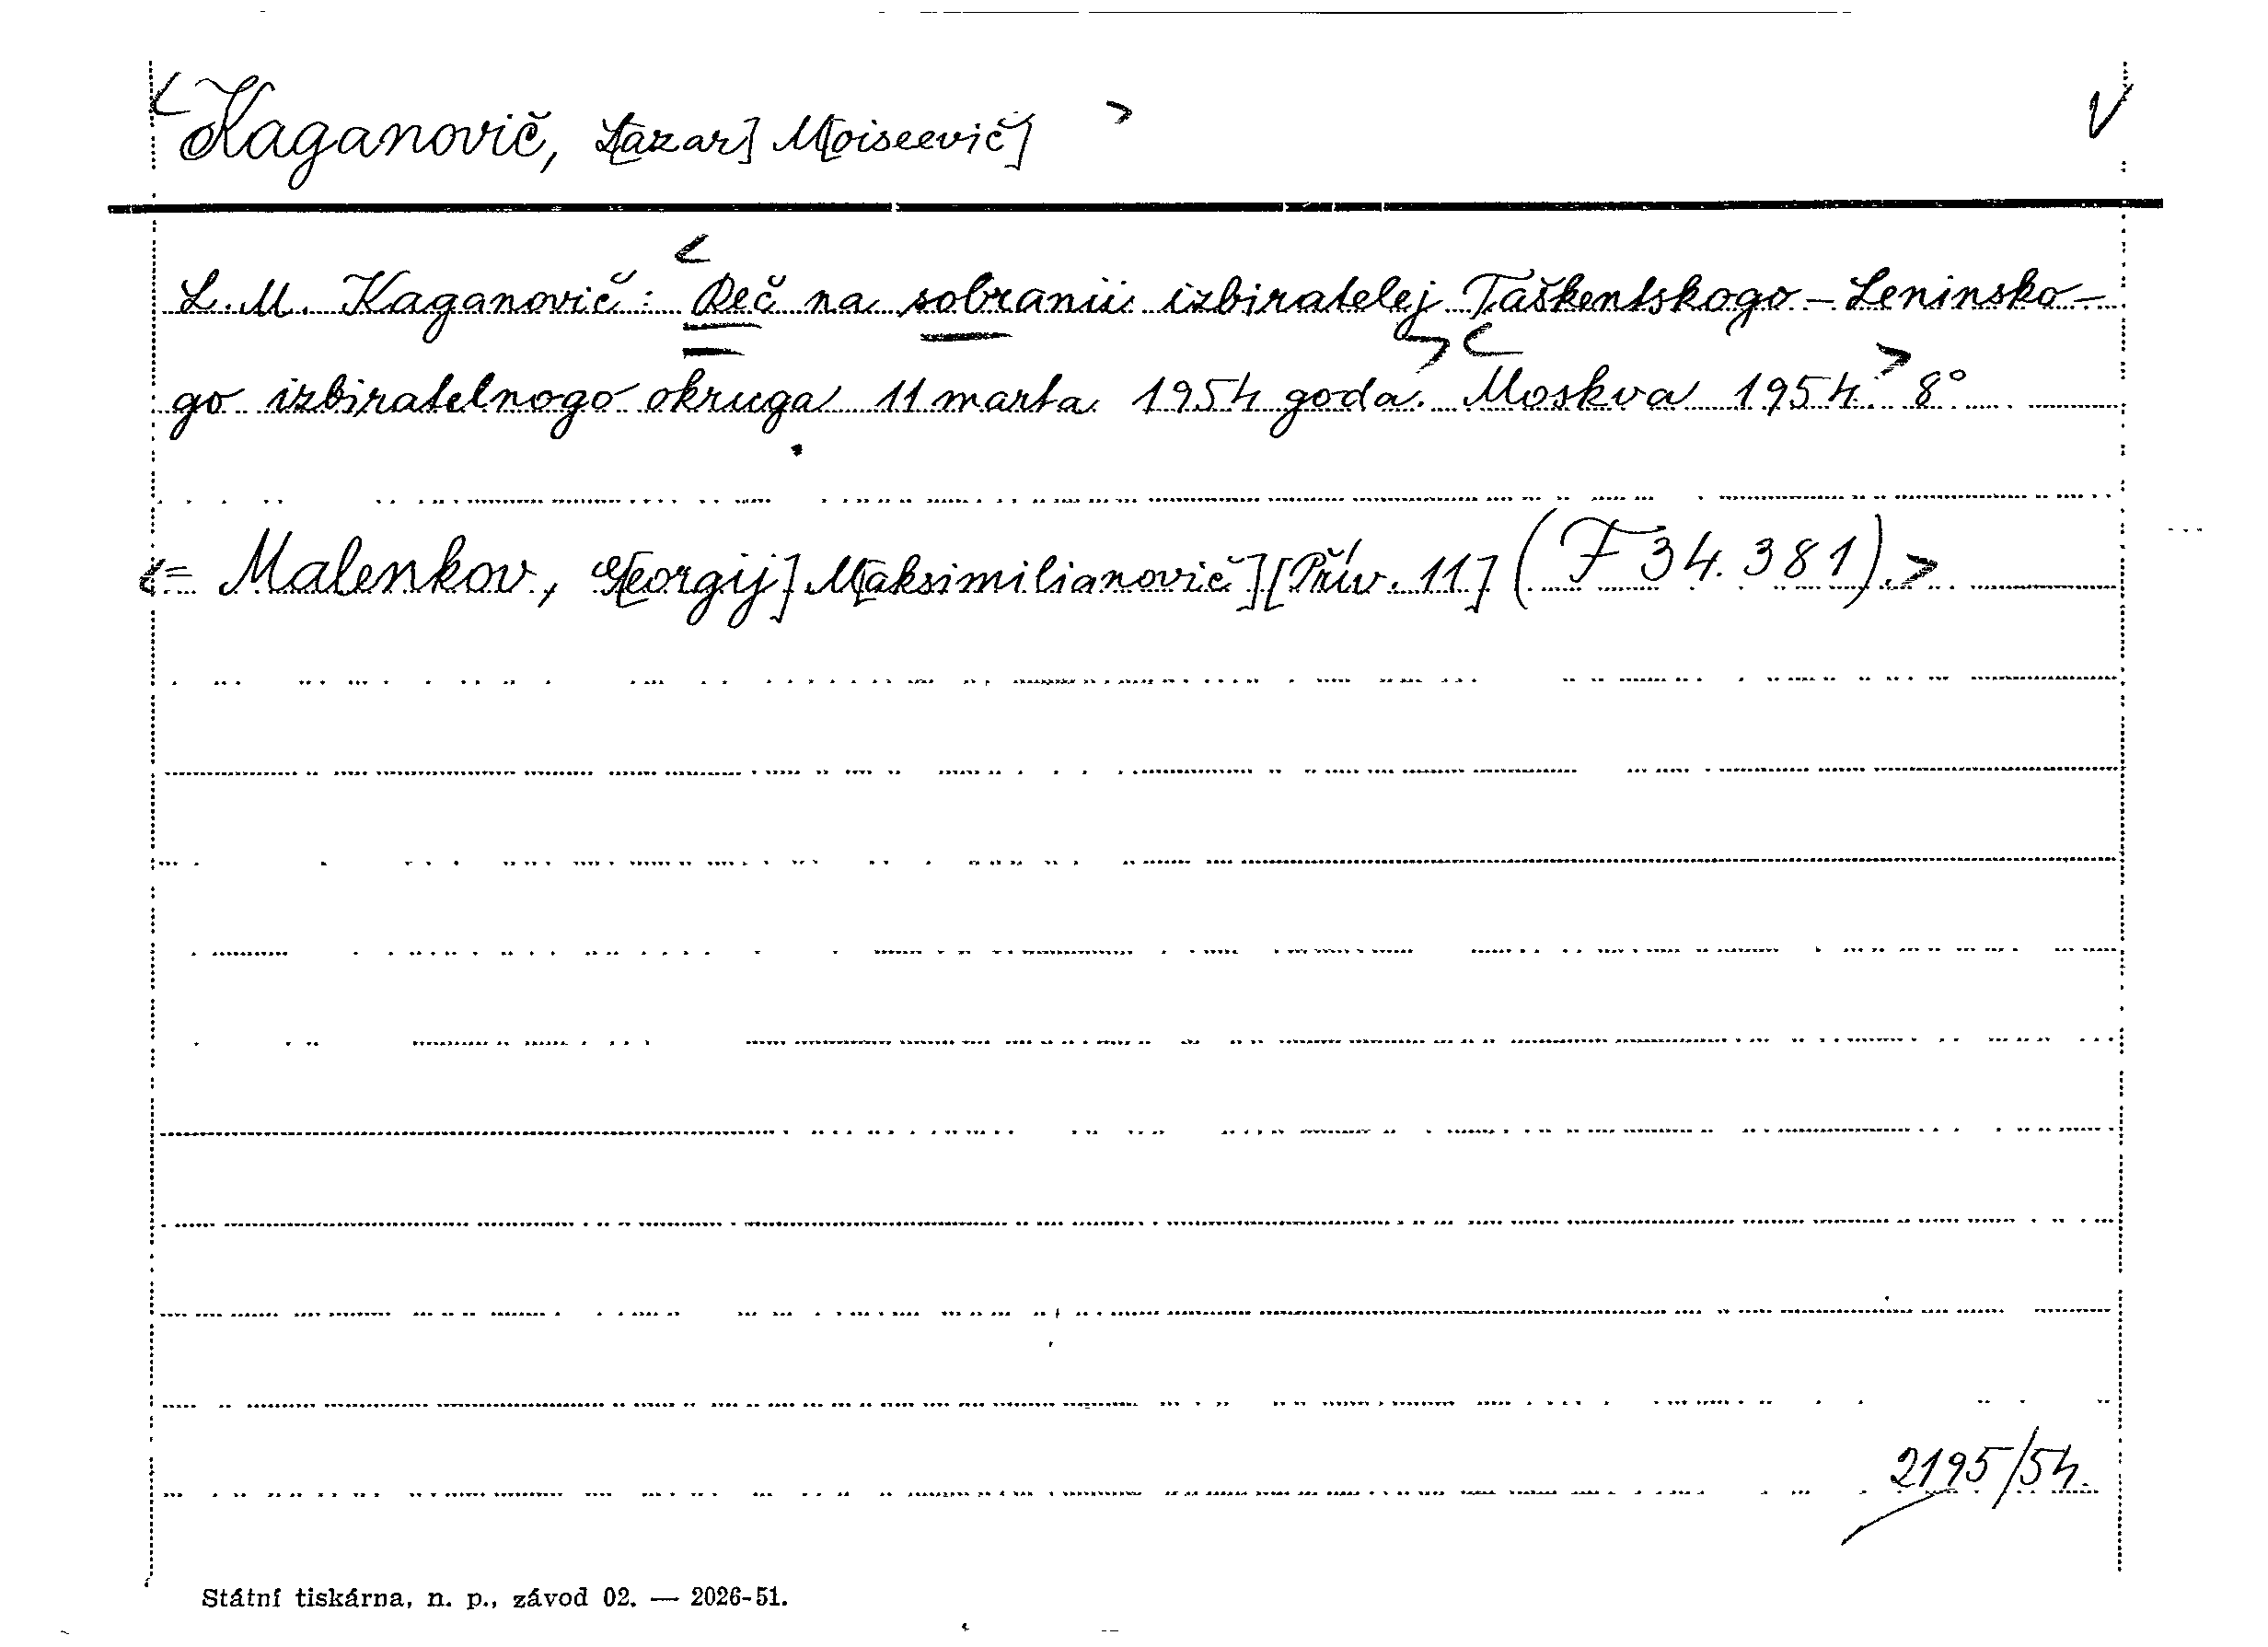 < Kaganovič, L[azar] M[oiseevič] > V
L. M. Kaganovič: < Reč na sobranii izbiratelej Taškentskogo - Leninsko-
go izbiratelnogo okruga 11 marta 1954 goda. > < Moskva 1954. > 8°
<= Malenkov, G[eorgij] M[aksimilianovič] [Přív. 11] (F 34.381). >
2195/54.
Státní tiskárna, n. p., závod 02. — 2026-51.